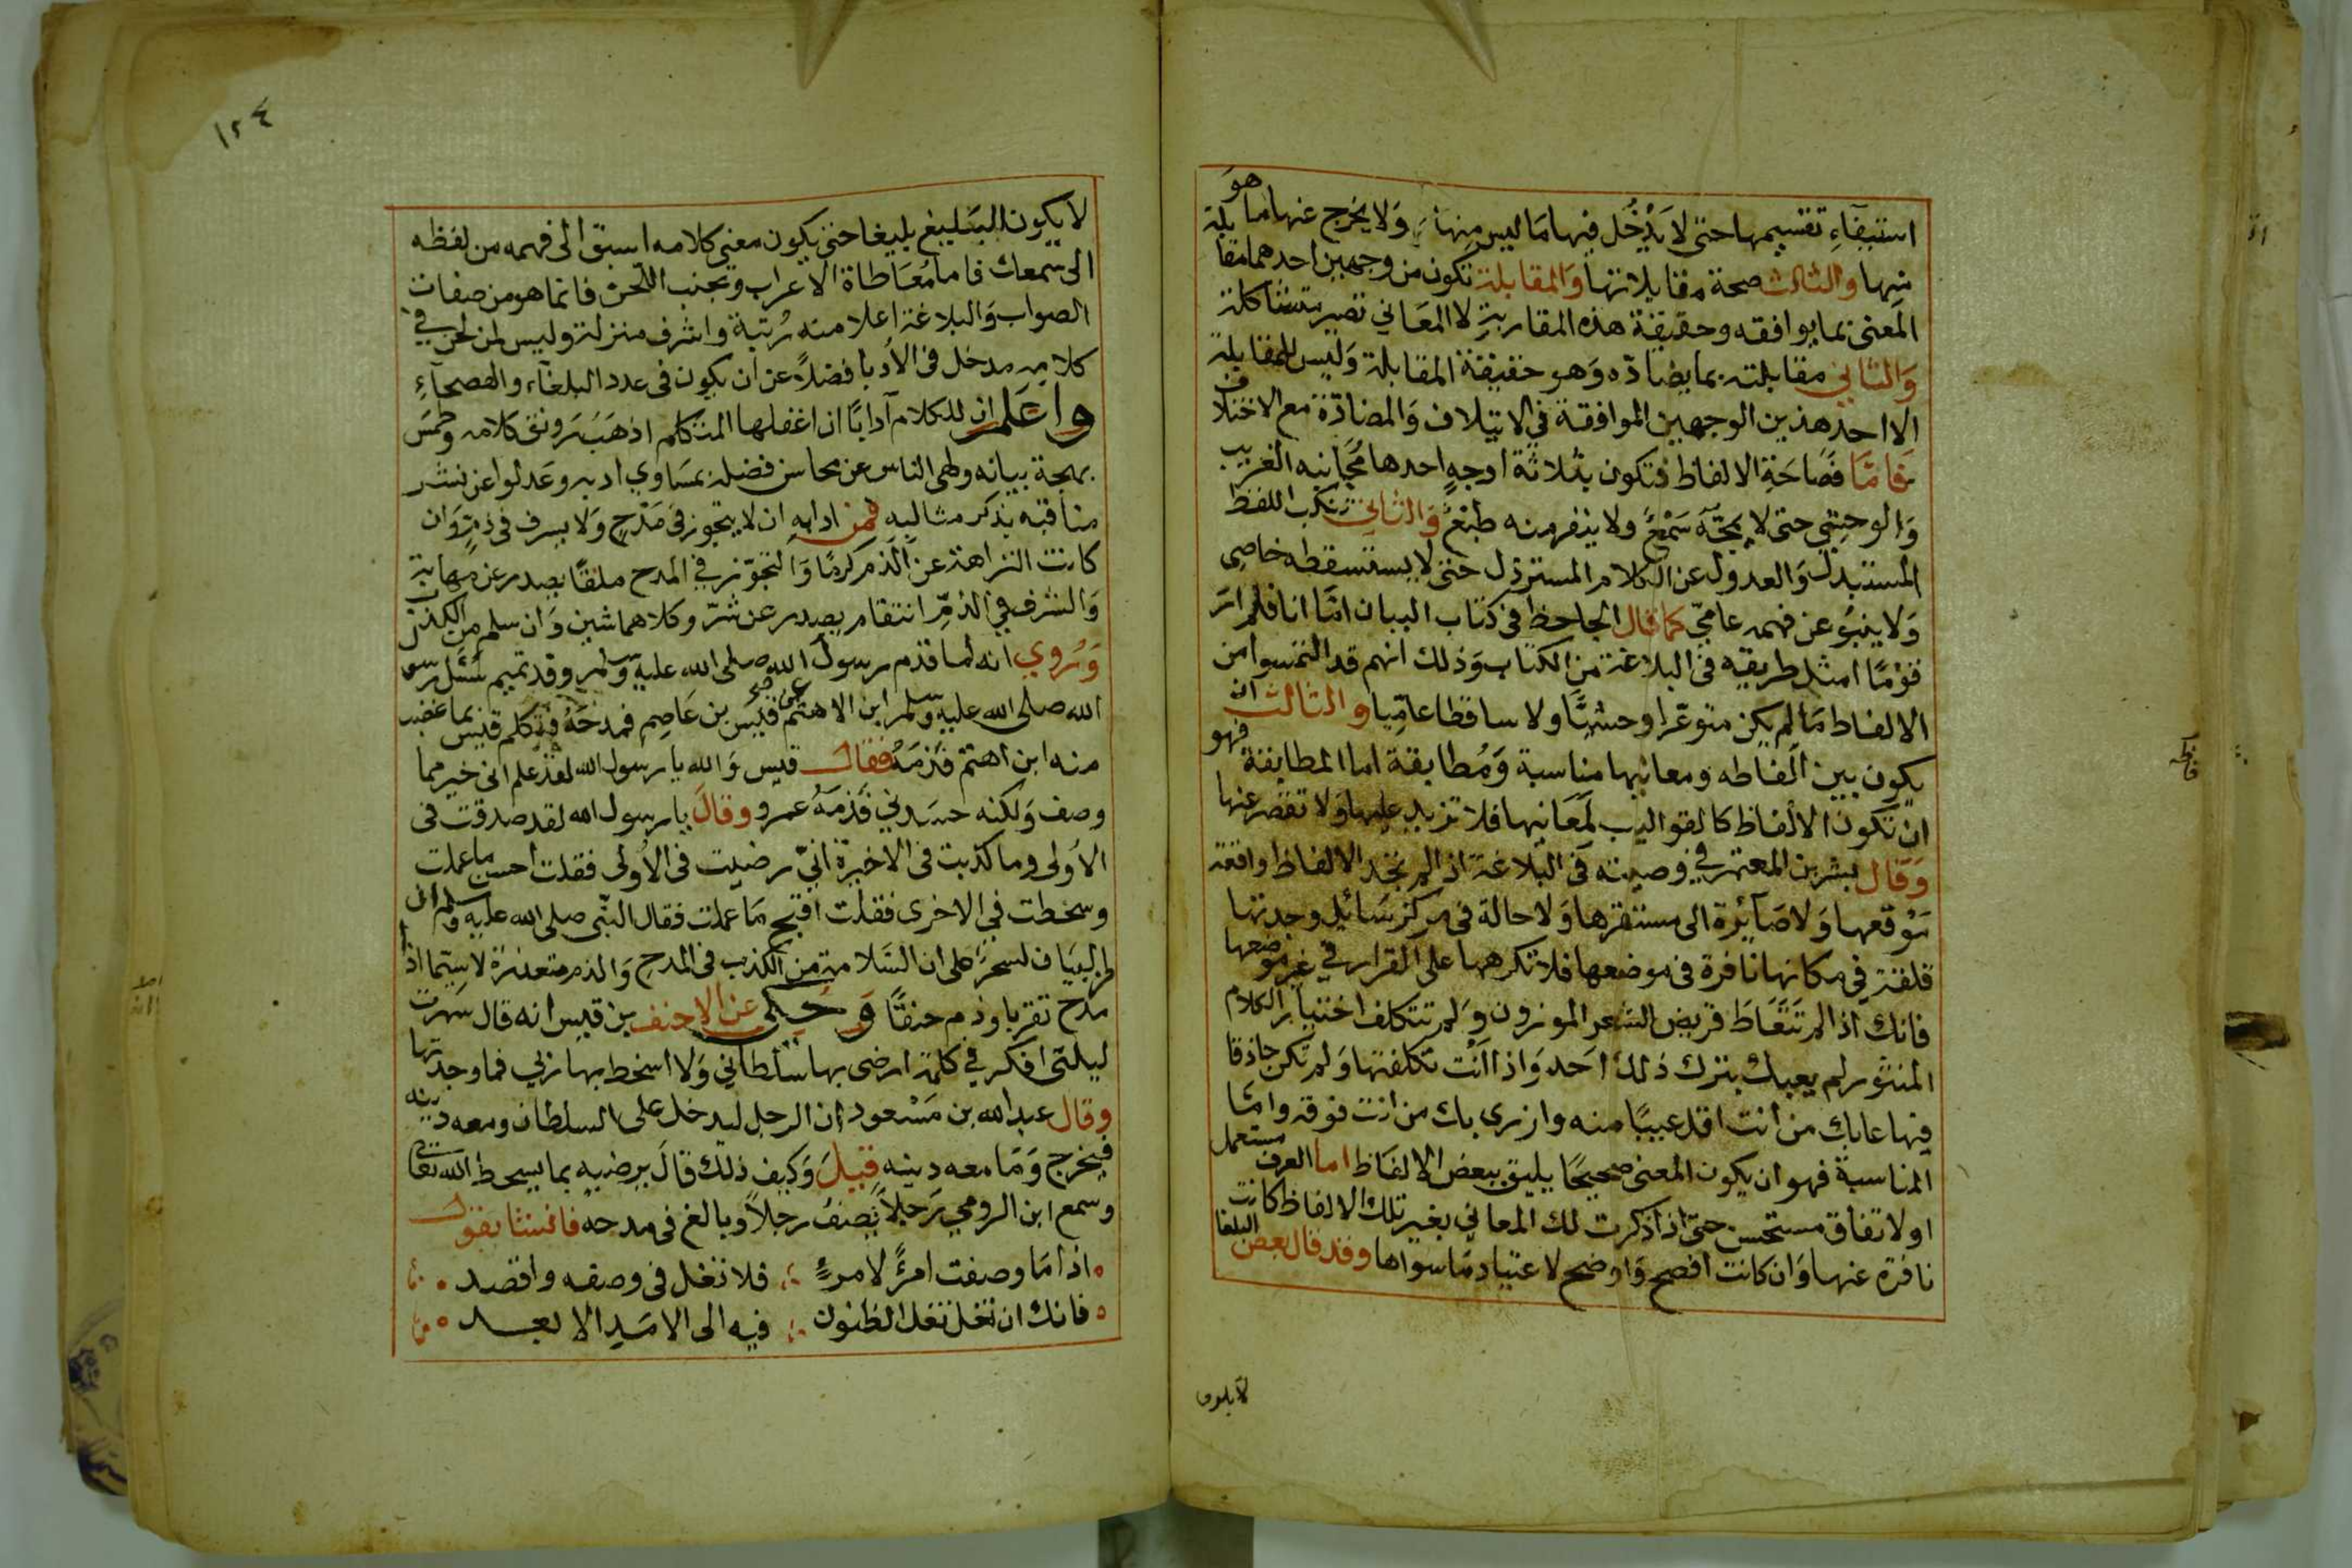 استيفآء تقسيمها حتى لا يدخل فيها ما ليس منها ولا يخرج عنها ما هو
منها والثالث صحة مقابلاتها والمقابلة تكون من وجهين احدهما مقابلة
المعنى بما يوافقه وحقيقة هذه المقاربة لا المعاني تصير متشاكلة
والثاني مقابلته بما يضادّه وهو حقيقة المقابلة وليس للمقابلة
الا احد هذين الوجهين الموافقة في الايتلاف والمضادّة مع الاختلاف
فامّا فصاحة الالفاظ فتكون بثلاثة اوجه احدها مجانبه الغريب
والوحشي حتى لا يمجّه سمع ولا ينفر منه طبع والثاني تنكب اللفظ
المستبذل والعدول عن الكلام المسترذل حتى لا يستسقطه خاصي
ولا ينبو عن فهمه عاميّ كما قال الجاحظ في كتاب البيان امّا انا فلم ار
قومًا امثل طريقه في البلاغة من الكتاب وذلك انهم قد التمسوا من
الالفاظ ما لم يكن متوعّرا وحشيًّا ولا ساقطا عاميّا والثالث ان
يكون بين الفاظه ومعانيها مناسبة ومطابقة اما المطابقة فهو
ان تكون الالفاظ كالقواليب لمعانيها فلا تزيد عليها ولا تقصر عنها
وقال بشر بن المعتمر في وصيته في البلاغة اذا لم تجد الالفاظ واقعة
موقعها ولا صآئرة الى مستقرها ولا حالة في مركز سائل وجدتها
قلقة في مكانها نافرة في موضعها فلا تكرهها على القرار في غير موضعها
فانك اذا لم تتعاط قريض الشعر الموزون ولم تتكلف اختيار الكلام
المنثور لم يعيبك بترك ذلك احد واذا انت تكلفتها ولم تكن حاذقا
فيها عابك من انت اقل عيبًا منه وازرى بك من انت فوقه وامّا
المناسبة فهو ان يكون المعنى صحيحًا يليق ببعض الالفاظ اما العرف مستعمل
او لاتفاق مستحسن حتّى اذا ذكرت لك المعاني بغير تلك الالفاظ كانت
نافرة عنها وان كانت افصح واوضح لاعتياد ما سواها وقد قال بعض البلغا
١٢٤
لا يكون البليغ بليغا حتى يكون معنى كلامه اسبق الى فهمه من لفظه
الى سمعك فاما معاطاة الاعراب وتجنب اللّحن فانما هو من صفات
الصواب والبلاغة اعلا منه رتبة واشرف منزلة وليس لمن لحن في
كلامه مدخل في الأدبا فضلاً عن ان يكون في عدد البلغآء والفصحآء
واعلم ان للكلام آدابًا ان اغفلها المتكلم اذهب رونق كلامه وطمس
بهجة بيانه ولهى الناس عن محاسن فضله بمساوي ادبه وعدلوا عن نشر
مناقبه بذكر مثالبه فمن ادابه ان لا يتجوز في مدح ولا يسرف في ذمّ وان
كانت النزاهة عن الذم كرمًا والتجوّز في المدح ملقًا يصدر عن مهانة
والسرف في الذمّ انتقام يصدر عن شرّ وكلاهما شين وان سلم من الكذب
وروي انه لما قدم رسول الله صلى الله عليه وسلم وقد تميم سئل رسول
الله صلى الله عليه وسلم ابن الاهتم عن قيس بن عاصم فمدحه فتكلم قيس بما غضب
منه ابن اهتم فذمه فقال قيس والله يا رسول الله لقد علم اني خير مما
وصف ولكنه حسدني فذمه عمرو وقال يا رسول الله لقد صدقت في
الأولى وما كذبت في الاخيرة اني رضيت في الأولى فقلت احسن ما علمت
وسخطت في الاخرى فقلت اقبح ما علمت فقال النبّي صلى الله عليه وسلم ان
من البيان لسحرًا على ان السّلامة من الكذب في المدح والذم متعذرة لا سيّما اذا
مدح تقربا وذم حنقًا وحكي عن الاحنف بن قيس انه قال سهرت
ليلتى افكر في كلمة ارضى بها سلطاني ولا اسخط بها ربي فما وجدتها
وقال عبد الله بن مسعود ان الرجل ليدخل على السلطان ومعه دينه
فيخرج وما معه دينه قيل وكيف ذلك قال يرضيه بما يسخط الله تعالى
وسمع ابن الرومي رجلاً يصف رجلاً وبالغ في مدحه فانشا يقول
اذا ما وصفت امرًا لامرءٍ فلا تغل في وصفه واقصد
فانك ان تغل تغل الظنون فيه الى الامد الابعد
لا يكون